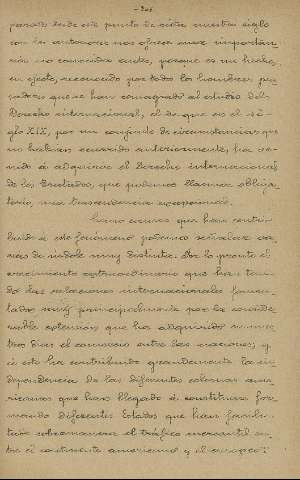 parado desde este punto de vista nuestro siglo
con los anteriores nos ofrece una importan-
cia no conocida antes, porque es un hecho,
en efecto, reconocido por todos los hombres pen-
sadores que se han consagrado al estudio del
Derecho internacional, el de que en el si-
glo XIX, por un conjunto de circunstancias que
no habian ocurrido anteriormente, ha ve-
nido á adquirir el Derecho internacional
de los Tratados, que podemos llamar obliga-
torio, una trascendencia excepcional.
Como causas que han contri-
buido á este fenómeno podemos señalar va-
rias de indole muy distinta. Por lo pronto el
crecimiento extraordinario que han teni-
do las relaciones internacionales fomen-
tadas muy principalmente por la conside-
rable extension que ha adquirido en nues-
tros dias el comercio entre las naciones; y
á esto ha contribuido grandemente la in-
dependencia de las diferentes colonias ame-
ricanas que han llegado á constituirse for-
mando diferentes Estados que han fomen-
tado sobremanera el tráfico mercantil en-
tre el continente americano y el europeo: